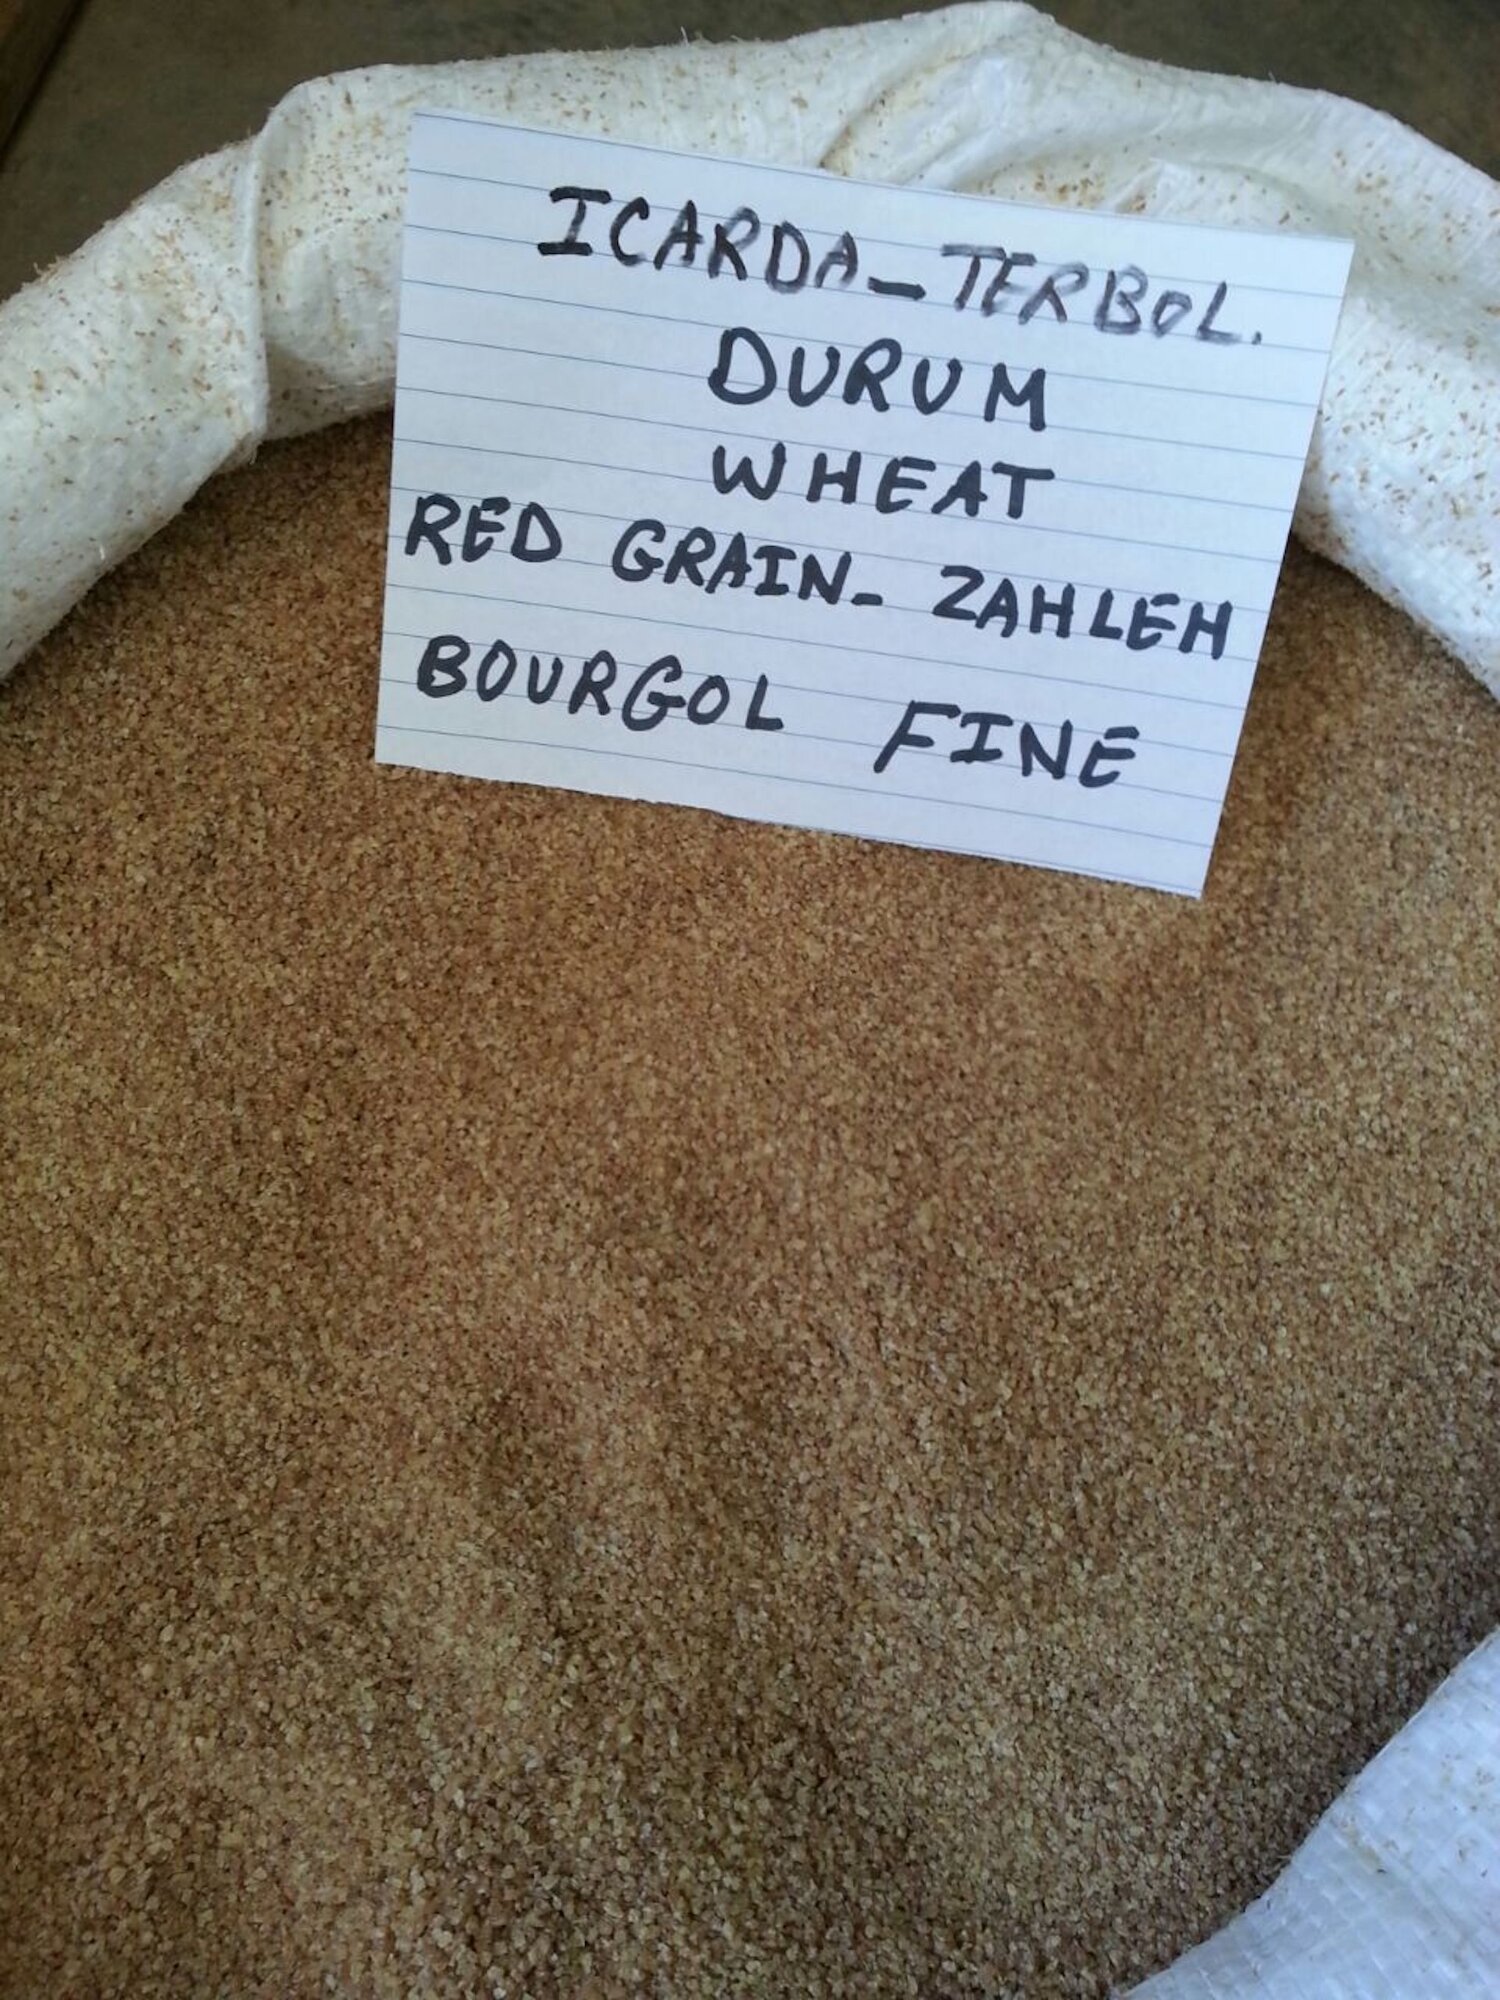 ICARDA-TERBOL.
DURUM
WHEAT
RED GRAIN- ZAHLEH
BOURGOL FINE